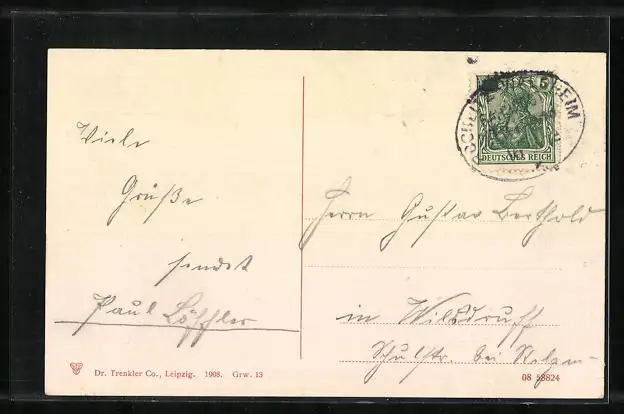 Viele
Grüße
sendet
Paul Löffler
DEUTSCHES REICH
Herrn Gustav Berthold
in Wilsdruff
Schulstr. bei
Dr. Trenkler Co., Leipzig. 1908. Grw. 13
08 58824